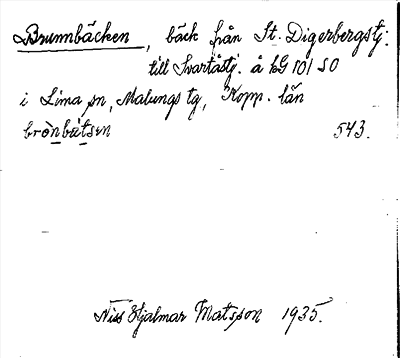 Brunnbäcken, bäck från St. Digerbergstj.
till Svartåstj. å kG 101 SO
i Lima sn, Malungs tg, Kopp. län
brònbætsen 543.
Niss Hjalmar Matsson 1935.